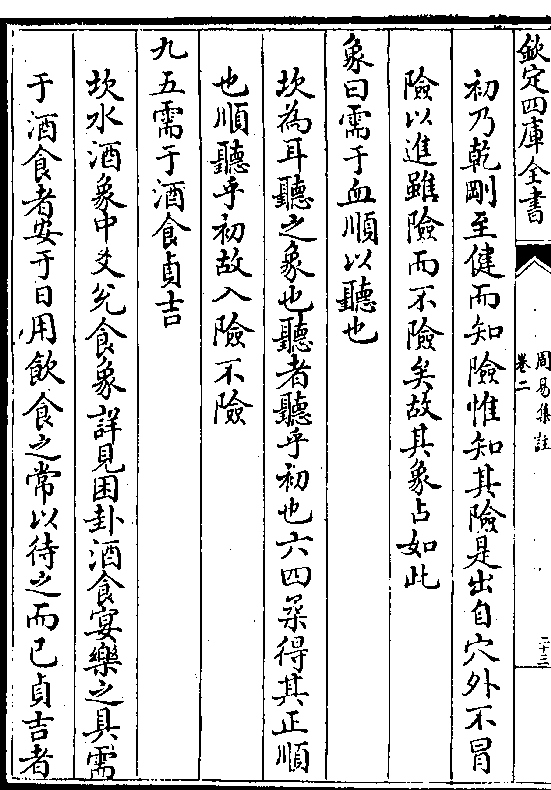 欽定四庫全書
周易集註
卷二
二十三
初乃乾剛至健而知險惟知其險是出自穴外不冒
險以進雖險而不險矣故其象占如此
象曰需于血順以聽也
坎為耳聽之象也聽者聽乎初也六四柔得其正順
也順聽乎初故入險不險
九五需于酒食貞吉
坎水酒象中爻兌食象詳見困卦酒食宴樂之具需
于酒食者安于日用飲食之常以待之而已貞吉者